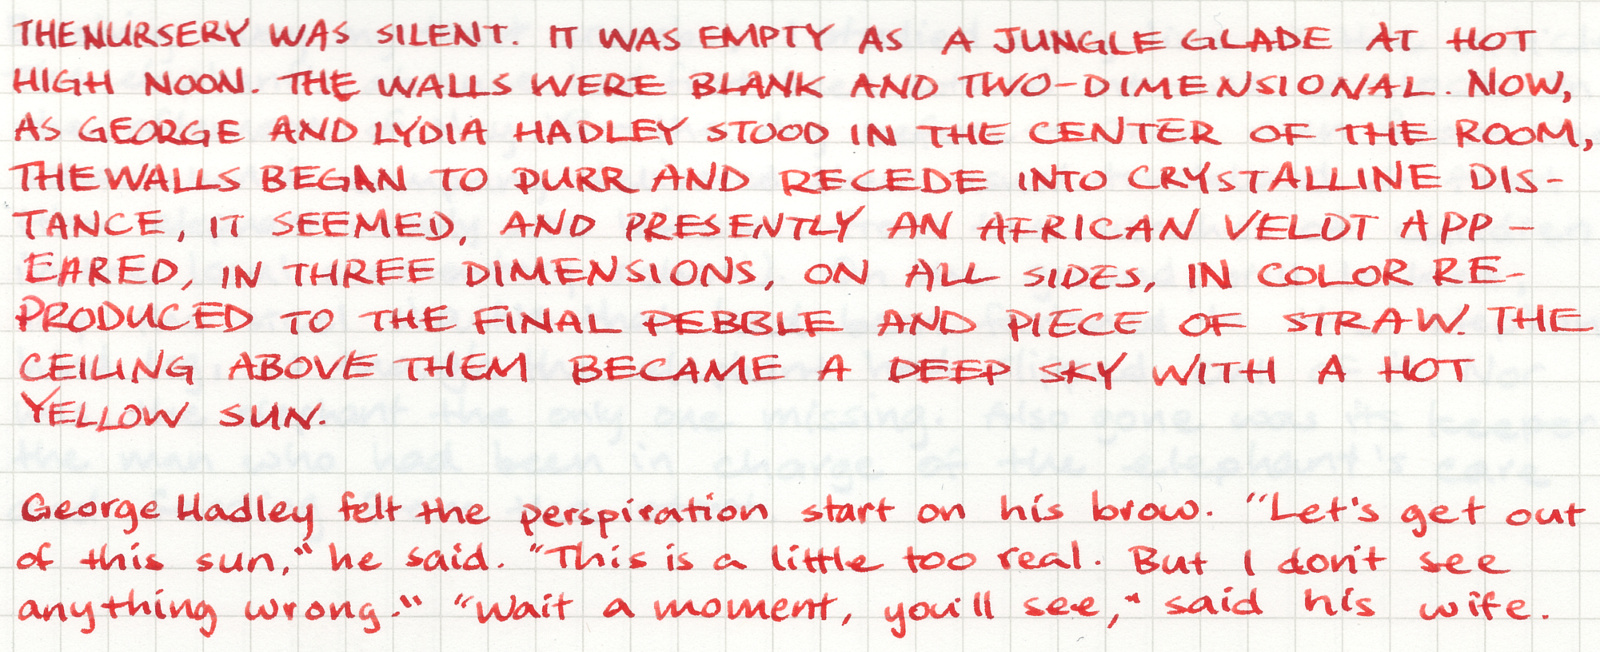 THE NURSERY WAS SILENT. IT WAS EMPTY AS A JUNGLE GLADE AT HOT
HIGH NOON. THE WALLS WERE BLANK AND TWO-DIMENSIONAL. NOW,
AS GEORGE AND LYDIA HADLEY STOOD IN THE CENTER OF THE ROOM,
THE WALLS BEGAN TO PURR AND RECEDE INTO CRYSTALLINE DIS-
TANCE, IT SEEMED, AND PRESENTLY AN AFRICAN VELDT APP-
EARED, IN THREE DIMENSIONS, ON ALL SIDES, IN COLOR RE-
PRODUCED TO THE FINAL PEBBLE AND PIECE OF STRAW. THE
CEILING ABOVE THEM BECAME A DEEP SKY WITH A HOT
YELLOW SUN.
George Hadley felt the perspiration start on his brow. "Let's get out
of this sun," he said. "This is a little too real. But I don't see
anything wrong." "Wait a moment, you'll see," said his wife.